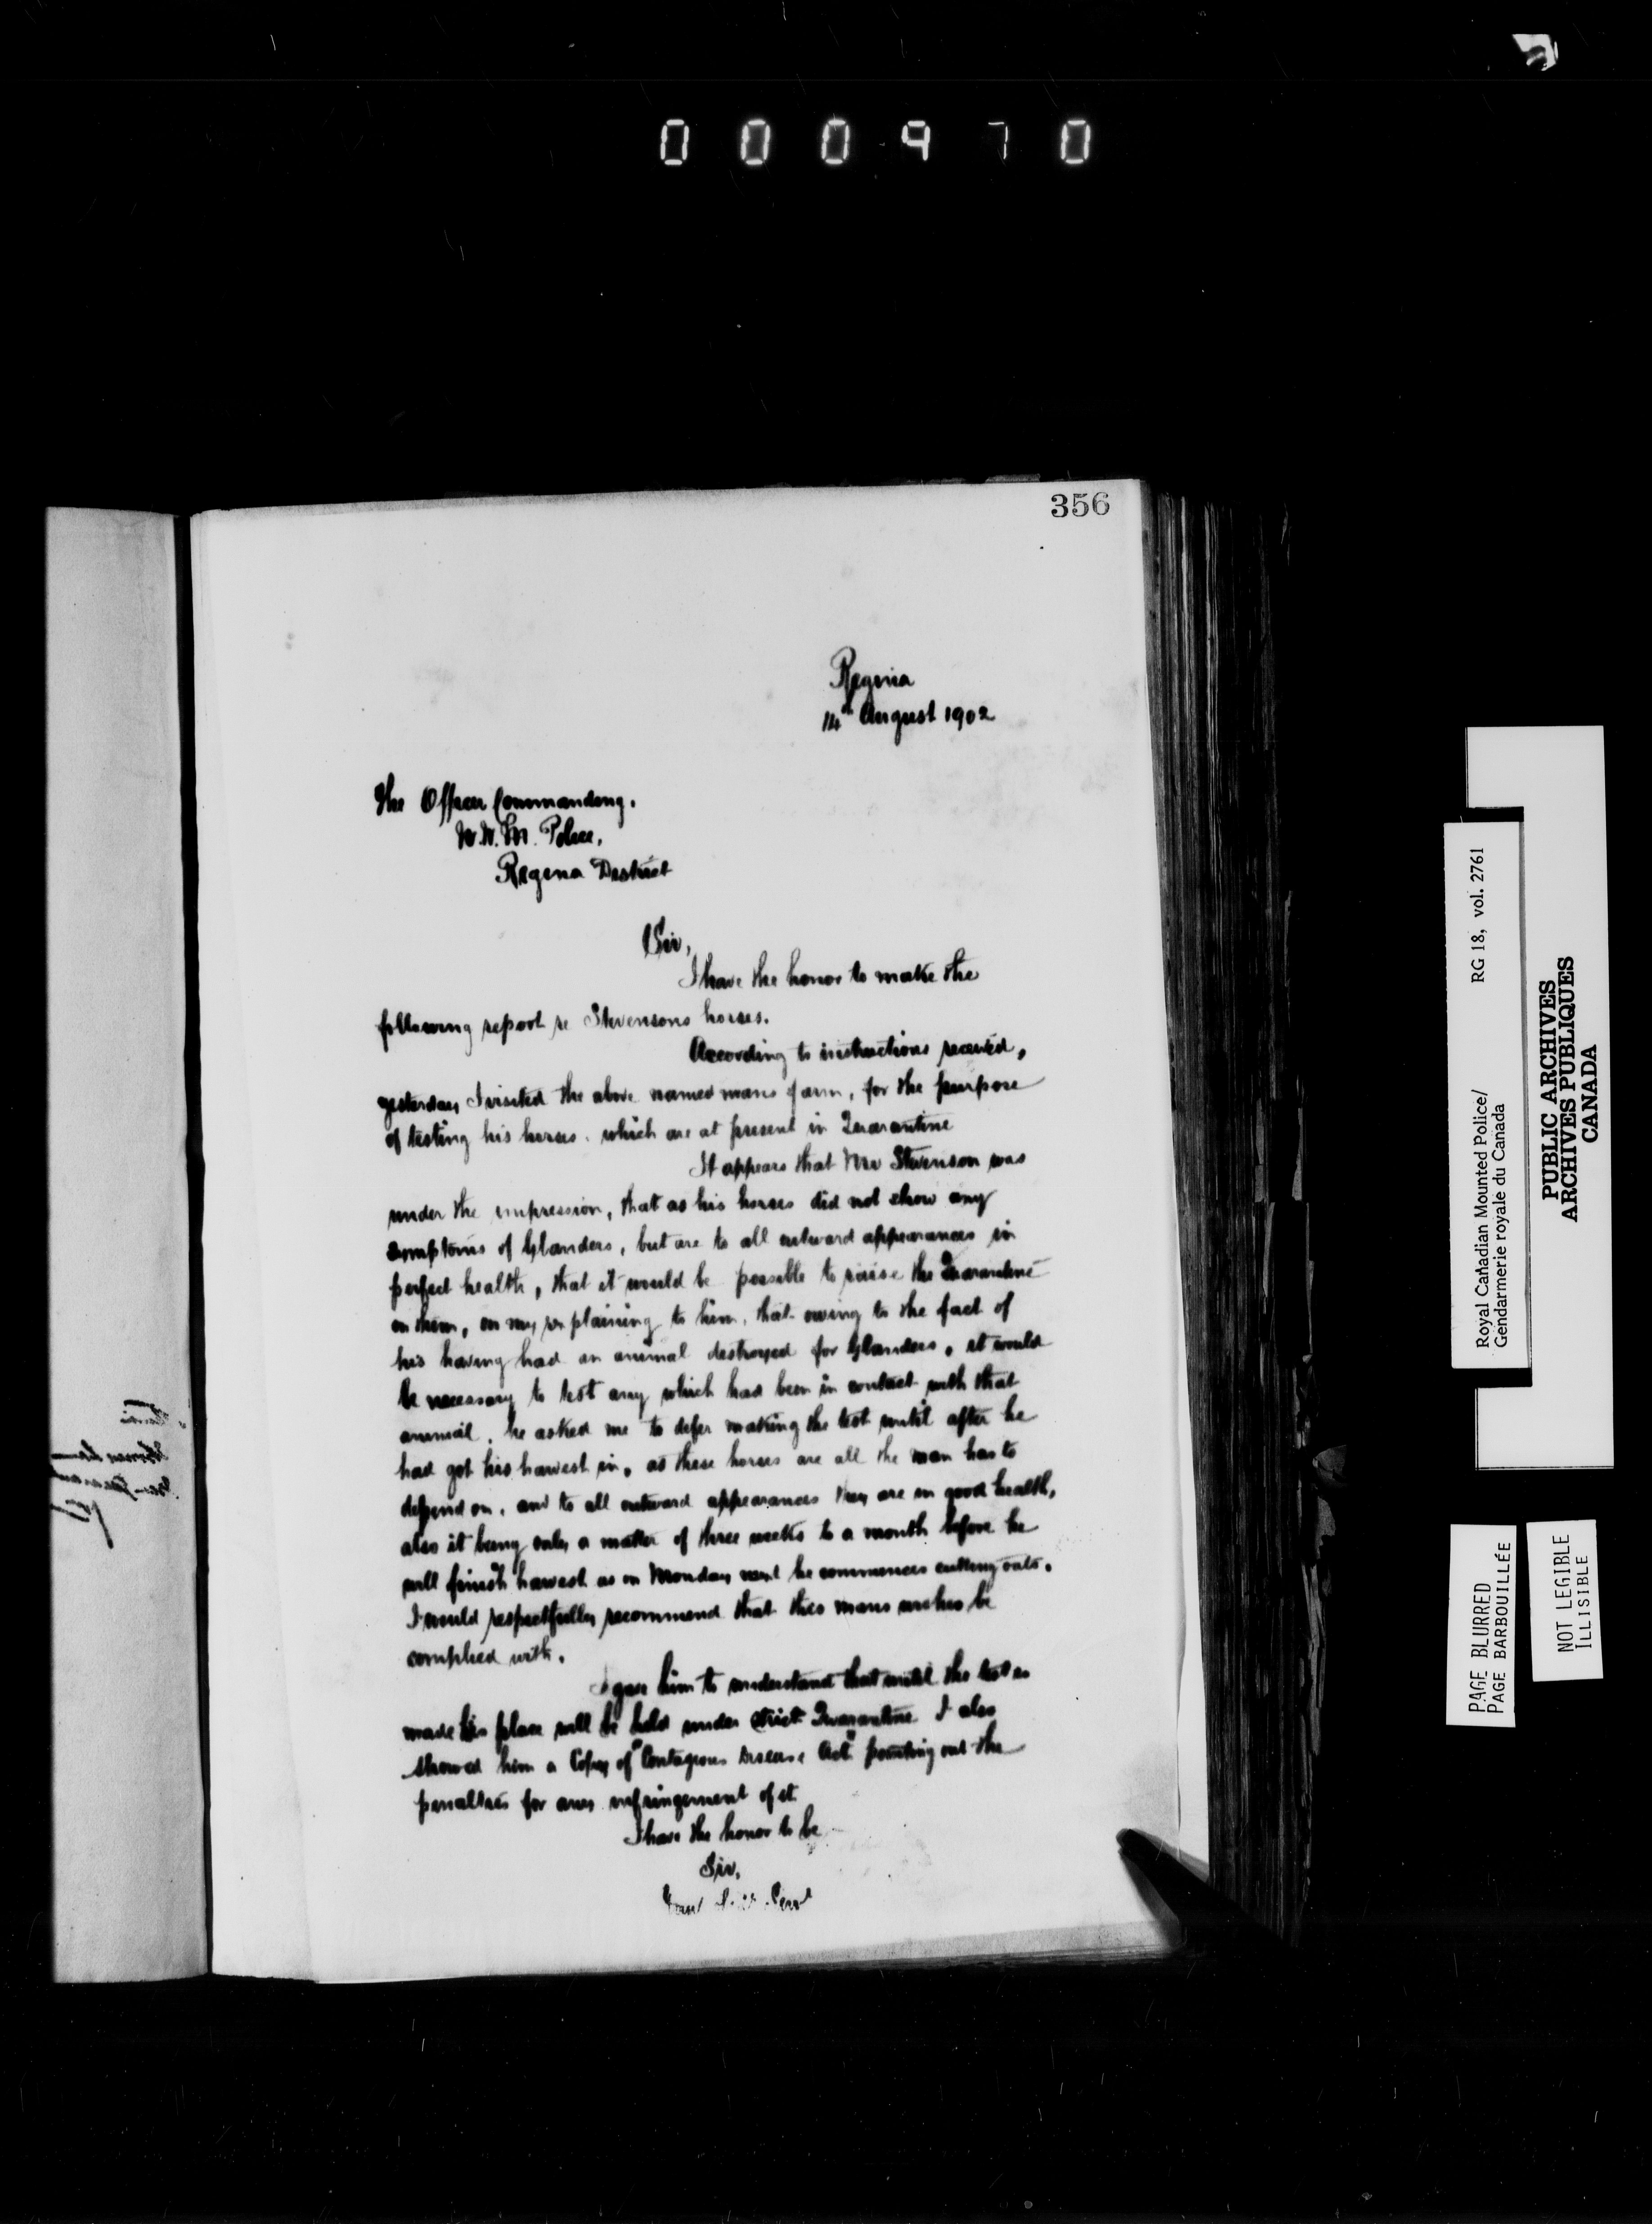 000970
356
Regina
14th August 1902
The Officer Commanding.
N.W.M. Police,
Regina District
Sir,
I have the honor to make the
following report re Stevensons horses.
According to instructions received,
yesterday I visited the above named mans farm, for the purpose
of testing his horses. which are at present in Quarantine
It appears that Mr Stevenson was
under the impression, that as his horses did not show any
symptoms of Glanders, but are to all outward appearances in
perfect health, that it would be possible to raise the Quarantine
on them, on my explaining to him, that owing to the fact of
his having had an animal destroyed for Glanders, it would
be necessary to test any which had been in contact with that
animal, he asked me to defer making the test until after he
had got his harvest in, as these horses are all the man has to
depend on, and to all outward appearances they are in good health,
also it being only a matter of three weeks to a month before he
will finish harvest as on Monday next he commences cutting oats.
I would respectfully recommend that this mans wishes be
complied with.
I gave him to understand that until the test is
made his place will be held under strict Quarantine. I also
showed him a Copy of "Contagious Disease Act" pointing out the
penalties for any infringement of it.
I have the honor to be
Sir,
Serv
Royal Canadian Mounted Police/ RG 18, vol. 2761
Gendarmerie royale du Canada
PUBLIC ARCHIVES
ARCHIVES PUBLIQUES
CANADA
PAGE BLURRED
PAGE BARBOUILLÉE
NOT LEGIBLE
ILLISIBLE